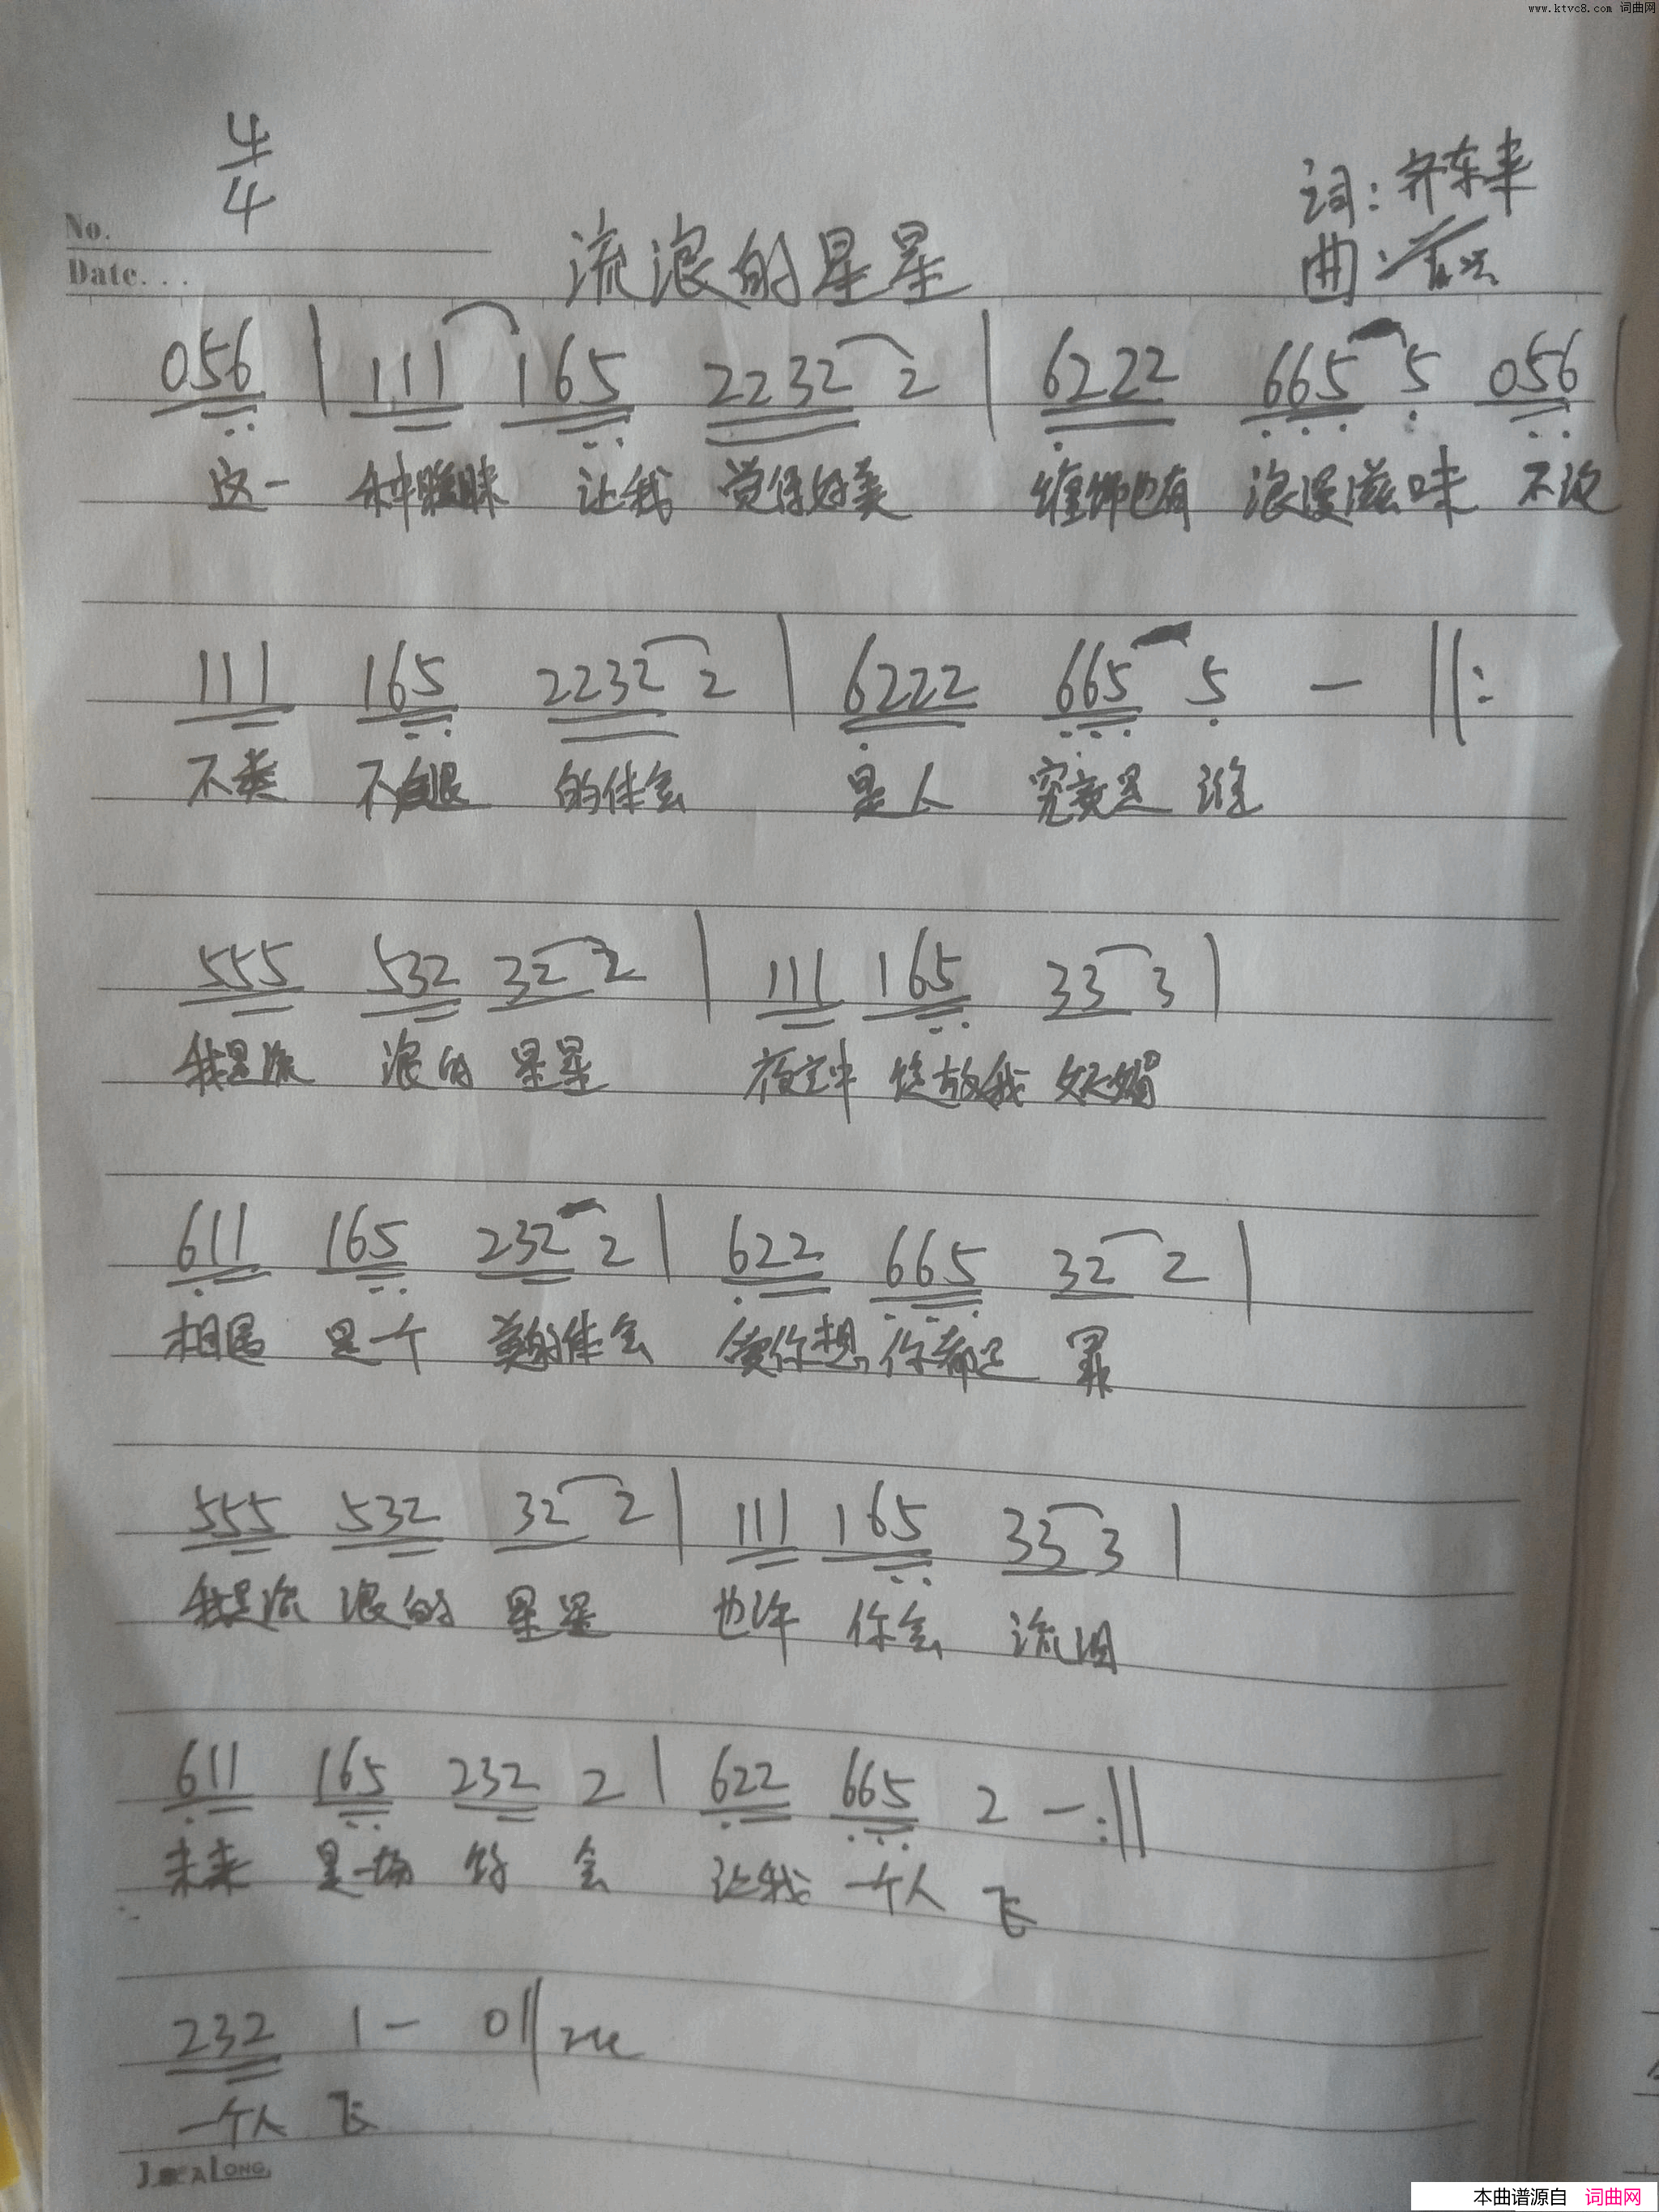 www.ktvc8.com 词曲网
4/4
词:齐东来
No.
流浪的星星
曲:
Date...
056 | 111 165 2232 2 | 6222 665 5 056 |
这一 种暧昧 让我 觉得好美 缠绵也有 浪漫滋味 不说
111 165 2232 2 | 6222 665 5 — ||:
不类 不 的体会 是人 究竟是 谁
555 532 32 2 | 111 165 33 3 |
我是流 浪的 星星 夜空中 绽放我 妩媚
611 165 232 2 | 622 665 32 2 |
相遇 是一个 美的体会 你想 你都是 罪
555 532 32 2 | 111 165 33 3 |
我是流 浪的 星星 也许 你会 流泪
611 165 232 2 | 622 665 2 — :||
未来 是一场 约 会 让我 一个人 飞
232 1 — 0 ||
一个人 飞
本曲谱源自 词曲网